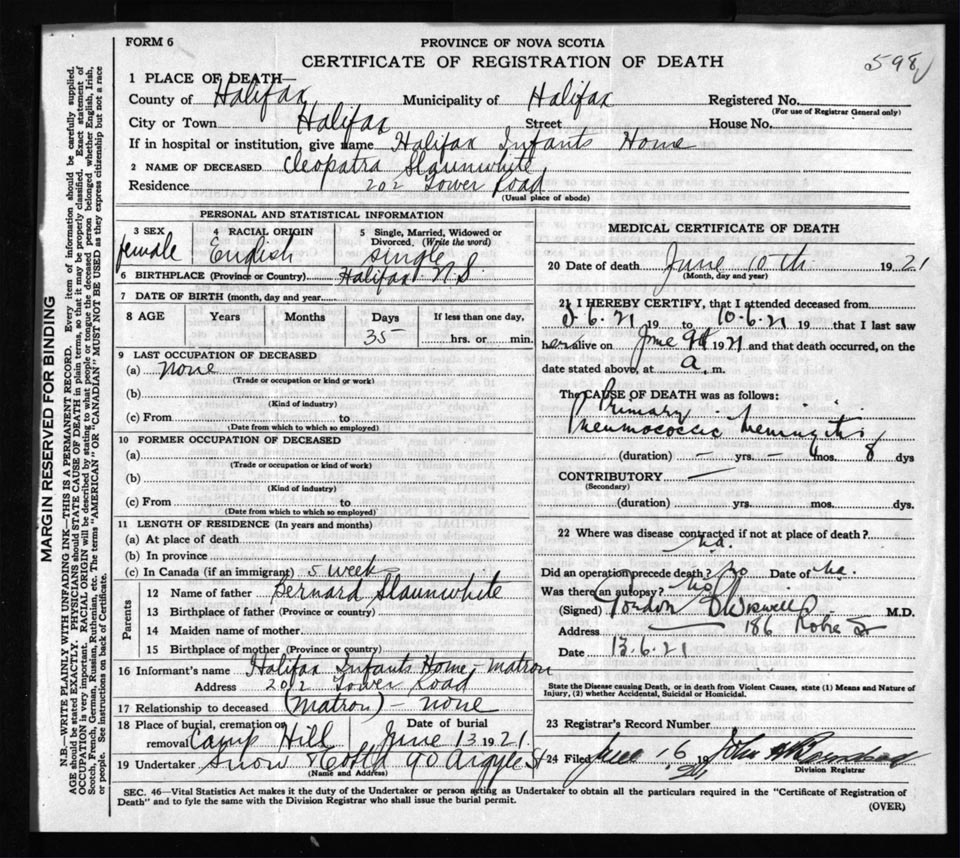 FORM 6
PROVINCE OF NOVA SCOTIA
CERTIFICATE OF REGISTRATION OF DEATH
598
1 PLACE OF DEATH—
County of Halifax Municipality of Halifax Registered No.
(For use of Registrar General only)
City or Town Halifax Street House No.
If in hospital or institution, give name Halifax Infants Home
2 NAME OF DECEASED Cleopatra Slaunwhite
Residence 202 Tower Road
(Usual place of abode)
PERSONAL AND STATISTICAL INFORMATION
3 SEX 4 RACIAL ORIGIN 5 Single, Married, Widowed or Divorced. (Write the word)
female English single
6 BIRTHPLACE (Province or Country) Halifax N.S.
7 DATE OF BIRTH (month, day and year)
8 AGE Years Months Days If less than one day,
35 hrs. or min.
9 LAST OCCUPATION OF DECEASED
(a) none
(Trade or occupation or kind or work)
(b)
(Kind of industry)
(c) From to
(Date from which to which so employed)
10 FORMER OCCUPATION OF DECEASED
(a)
(Trade or occupation or kind of work)
(b)
(Kind of industry)
(c) From to
(Date from which to which so employed)
11 LENGTH OF RESIDENCE (In years and months)
(a) At place of death
(b) In province
(c) In Canada (if an immigrant) 5 weeks
Parents
12 Name of father Bernard Slaunwhite
13 Birthplace of father (Province or country)
14 Maiden name of mother
15 Birthplace of mother (Province or country)
16 Informant's name Halifax Infants Home - matron
Address 202 Tower Road
17 Relationship to deceased (matron) - none
18 Place of burial, cremation or removal Camp Hill Date of burial June 13 1921.
19 Undertaker Snow & Co Ltd 90 Argyle St
(Name and Address)
MEDICAL CERTIFICATE OF DEATH
20 Date of death June 10th 1921
(Month, day and year)
21 I HEREBY CERTIFY, that I attended deceased from
3-6-21 19 to 10-6-21 19 that I last saw
her alive on June 9th 1921 and that death occurred, on the
date stated above, at a. m.
The CAUSE OF DEATH was as follows:
Primary
Pneumococcic Meningitis
(duration) — yrs. — mos. 8 dys
CONTRIBUTORY —
(Secondary)
(duration) yrs. mos. dys.
22 Where was disease contracted if not at place of death?
na.
Did an operation precede death? no Date of na.
Was there an autopsy? no
(Signed) M.D.
Address 186 Robie St
Date 13.6.21
State the Disease causing Death, or in death from Violent Causes, state (1) Means and Nature of
Injury, (2) whether Accidental, Suicidal or Homicidal.
23 Registrar's Record Number
24 Filed June 16 19 21
Division Registrar
SEC. 46—Vital Statistics Act makes it the duty of the Undertaker or person acting as Undertaker to obtain all the particulars required in the "Certificate of Registration of
Death" and to fyle the same with the Division Registrar who shall issue the burial permit.
(OVER)
MARGIN RESERVED FOR BINDING
N.B.—WRITE PLAINLY WITH UNFADING INK—THIS IS A PERMANENT RECORD. Every item of information should be carefully supplied.
AGE should be stated EXACTLY. PHYSICIANS should STATE CAUSE OF DEATH in plain terms, so that it may be properly classified. Exact statement of
OCCUPATION is very important. RACIAL ORIGIN will be described by stating to what people or tongue the deceased person belonged whether English, Irish,
Scotch, French, German, Russian, Ruthenian, etc. The terms "AMERICAN" OR "CANADIAN" MUST NOT BE USED as they express citizenship but not a race
or people. See instructions on back of Certificate.